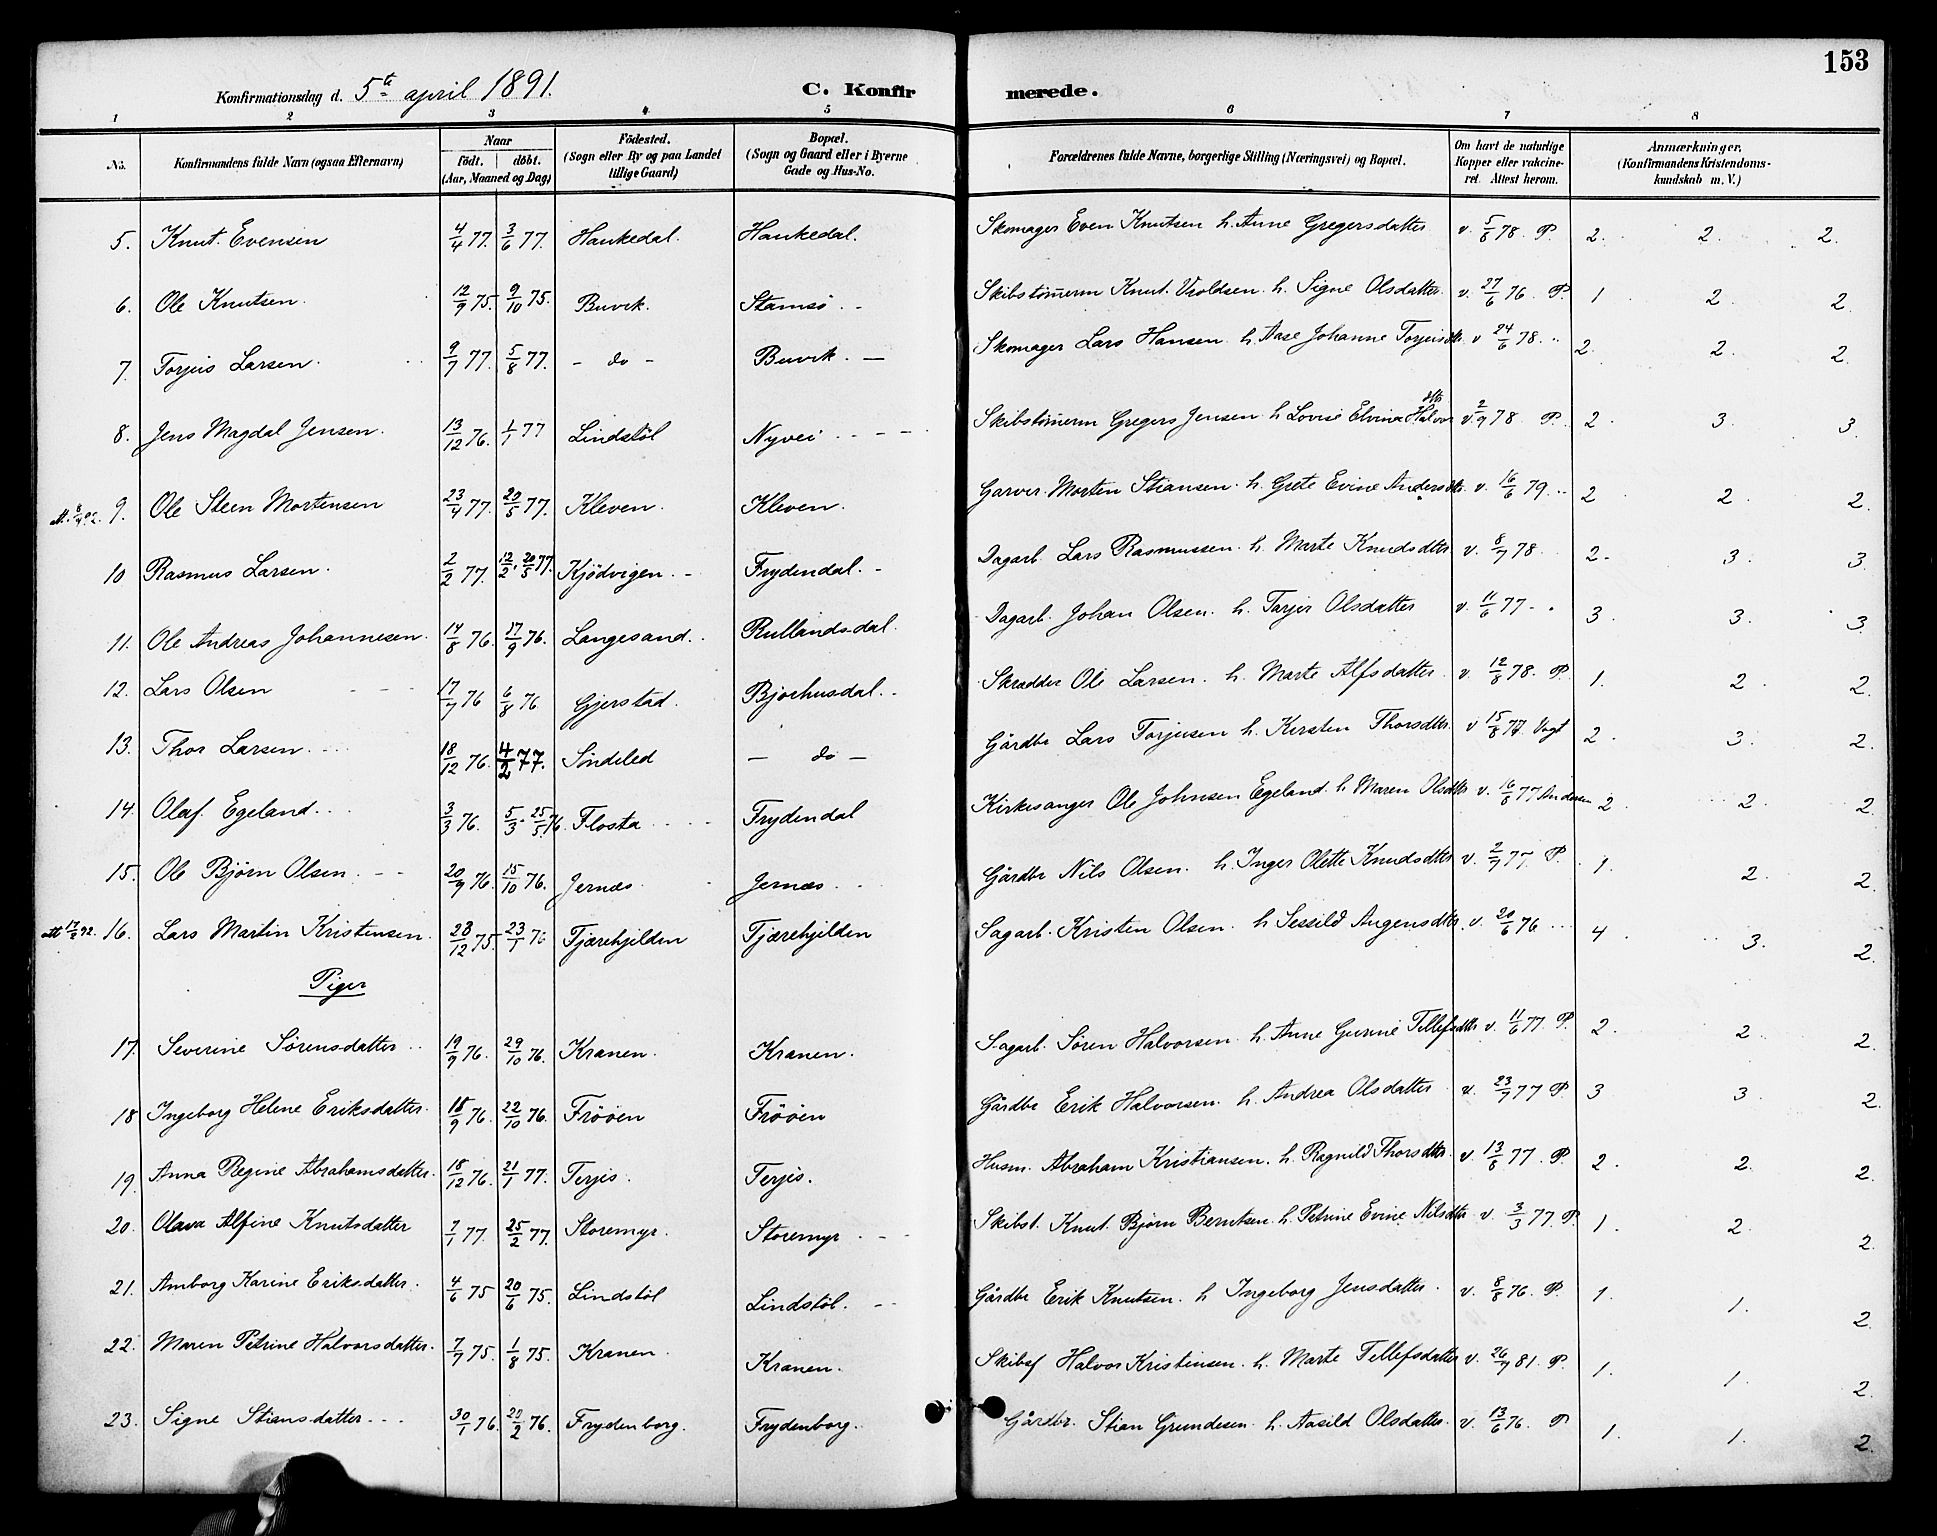 153
Konfirmationsdag d. 5te april 1891. C. Konfirmerede.
1 2 3 4 5 6 7 8
No. Konfirmandens fulde Navn (ogsaa Efternavn) Naar födt. döbt. (Aar, Maaned og Dag) Födested. (Sogn eller By og paa Landet tillige Gaard) Bopæl. (Sogn og Gaard eller i Byerne Gade og Hus-No. Forældrenes fulde Navne, borgerlige Stilling (Næringsvei) og Bopæl. Om havt de naturlige Kopper eller vakcineret. Attest herom. Anmærkninger, (Konfirmandens Kristendomskundskab m. V.)
5. Knut Evensen 4/4 77. 3/6 77. Haukedal. Haukedal. Skomager Even Knutsen h. Anne Gregersdatter v. 5/8 78. P. 2. 2. 2.
6. Ole Knutsen. 12/9 75. 9/10 75. Buvik. Stamsø Skibstømerm Knut Vroldsen h. Signe Olsdatter v. 27/6 76. P. 1 2 2
7. Torjus Larsen. 9/7 77. 5/8 77. - do - Buvik. Skomager Lars Hansen h. Aase Johanne Torjusdtr v. 24/6 78. 2. 2. 2.
8. Jens Magdal Jensen. 13/12 76. 1/1 77 Lindstöl Nyvei Skibstömerm Gregers Jensen h Lovise Elvine Halvorsdtr v. 2/9 78 P. 2 3. 3.
9. Ole Steen Mortensen 23/4 77. 20/5 77. Kleven. Kleven. Garver Morten Stiansen h. Grete Evine Andersdtr. v. 16/6 79. 2 2 2.
10 Rasmus Larsen. 2/2 77. 12/2, 20/5 77. Kjödvigen. Frydendal. Dagarb. Lars Rasmussen h. Marte Knudsdtr v. 8/7 78. 2. 3. 3.
11. Ole Andreas Johannesen. 14/8 76. 17/9 76. Langesand. Rullandsdal. Dagarb. Johan Olsen. h. Torjer Olsdatter v. 11/6 77. 3. 3. 3.
12. Lars Olsen 17/7 76 6/8 76 Gjerstad. Bjorhusdal. Skradder Ole Larsen. h. Marte Alfsdatter v. 12/8 78. P. 1. 2. 2.
13. Thor Larsen. 18/12 76. 4/2 77. Söndeled - do - Gårdbr Lars Torjusen h. Kirsten Thorsdtr. v 15/8 77. Vogt 2. 3. 2.
14. Olaf Egeland. 3/3 76. 5/3 - 25/5 76. Flosta Frydendal Kirkesanger Ole Johnsen Egeland. h Maren Olsdtr v. 16/8 77 Andersen 2. 2. 2.
15. Ole Bjørn Olsen. 20/9 76. 15/10 76. Jernæs. Jernæs. Gårdbr Nils Olsen. h. Inger Olette Knudsdtr v. 2/7 77. P. 1. 2. 2.
16. Lars Martin Kristensen. 28/12 75. 23/1 76 Tjærehjelden Tjærehjelden Sagarb. Kristen Olsen. h Sessild Augensdtr. v. 20/6 76 4. 3. 2.
Piger
17. Severine Sørensdatter 19/9 76. 29/10 76. Kranen. Kranen. Sagarb. Søren Halvorsen h. Anne Gurine Tellefsdtr v. 11/6 77. P. 2. 2. 2.
18 Ingeborg Helene Eriksdatter. 18/9 76. 22/10 76. Frööen Frööen Gårdbr Erik Halvorsen h. Andrea Olsdatter v. 23/7 77 P. 3 3. 2.
19. Anna Regine Abrahamsdatter. 18/12 76. 21/1 77. Terjes. Terjes. Husm. Abraham Kristiansen. h. Ragnild Thorsdtr. v. 13/8 77. P. 2. 2. 2.
20. Olava Alfine Knutsdatter 7/1 77. 25/2 77. Storemyr. Storemyr Skibst. Knut Bjørn Berntsen h. Petrine Evine Nilsdtr v. 3/3 77 P. 1. 2. 2.
21. Amborg Karine Eriksdatter. 4/6 75 20/6 75. Lindstöl Lindstöl. Gårdbr Erik Knutsen. h Ingeborg Jensdatter. v. 8/8 76. P. 1. 1. 2.
22. Maren Petrine Halvorsdatter. 7/7 75. 1/8 75. Kranen. Kranen. Skibsf Halvor Kristensen. h. Marte Tellefsdatter v. 26/7 81. P. 1. 1. 2.
23. Signe Stiansdatter 30/1 76. 20/2 76. Frydenborg. Frydenborg. Gårdbr. Stian Grundesen. h. Aasild Olsdatter. v. 13/6 76. P 1. 1. 2.